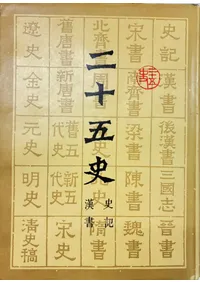 二十五史
史記
漢書
史記 漢書 後漢書 三國志 晉書
宋書 南齊書 梁書 陳書 魏書
北齊書
舊唐書 新唐書 舊五代史 新五代史 宋史
遼史 金史 元史 明史 清史稿